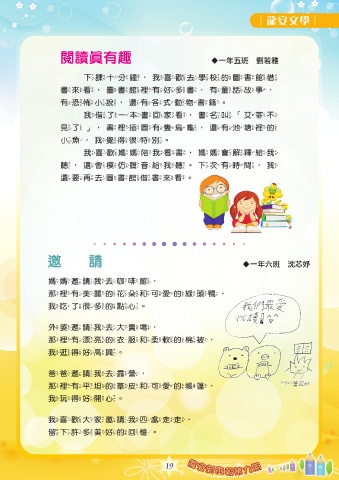 龍安文學
閱讀真有趣
◆一年五班　劉若雅
下課十分鐘，我喜歡去學校的圖書館借
書來看，圖書館裡有好多書，有童話故事，
有恐怖小說，還有各式動物書籍。
我借了一本書回家看，書名叫「艾菲不
見了」，書裡描面有隻烏龜，還有池塘裡的
小魚，我覺得很特別。
我喜歡媽媽陪我看書，媽媽會解釋給我
聽，還會模仿聲音給我聽。下次有時間，我
還要再去圖書館借書來看。
邀　請
◆一年六班　沈芯妤
媽媽邀請我去咖啡館，
那裡有美麗的花朵和可愛的綠頭鴨，
我吃了很多的點心。
外婆邀請我去大賣場，
那裡有漂亮的衣服和柔軟的棉被，
我逛得好高興。
爸爸邀請我去露營，
那裡有平坦的草皮和可愛的帳篷，
我玩得好開心。
我喜歡大家邀請我四處走走，
留下許多美好的回憶。
我們最愛
19